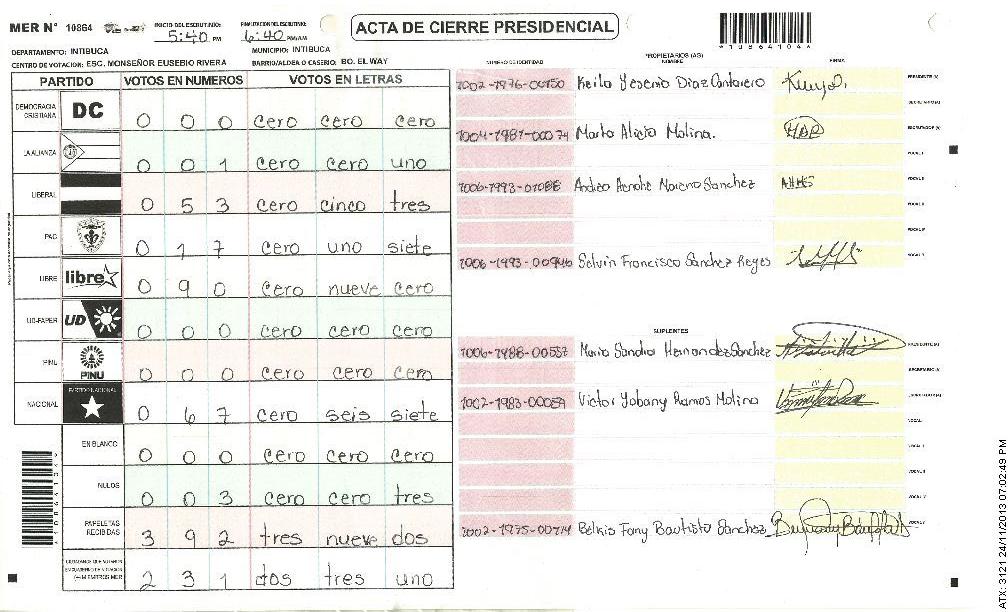 MER N° 10864
INICIO DEL ESCRUTINIO: 5:40 PM
FINALIZACION DEL ESCRUTINIO: 6:40 PM/AM
ACTA DE CIERRE PRESIDENCIAL
DEPARTAMENTO: INTIBUCA MUNICIPIO: INTIBUCA
CENTRO DE VOTACION: ESC. MONSEÑOR EUSEBIO RIVERA BARRIO/ALDEA O CASERIO: BO. EL WAY
PARTIDO VOTOS EN NUMEROS VOTOS EN LETRAS
DEMOCRACIA CRISTIANA DC 0 0 0 cero cero cero
LA ALIANZA 0 0 1 cero cero uno
LIBERAL 0 5 3 cero cinco tres
PAC 0 1 7 cero uno siete
LIBRE libre 0 9 0 cero nueve cero
UD-FAPER UD 0 0 0 cero cero cero
PINU PINU 0 0 0 cero cero cero
NACIONAL PARTIDO NACIONAL 0 6 7 cero seis siete
EN BLANCO 0 0 0 cero cero cero
NULOS 0 0 3 cero cero tres
PAPELETAS RECIBIDAS 3 9 2 tres nueve dos
2 3 1 dos tres uno
NUMERO DE IDENTIDAD PROPIETARIOS (AS) NOMBRE FIRMA
1002-1976-00150 Keila Yesenia Diaz Cantarero PRESIDENTE (A)
SECRETARIO (A)
1004-1987-00074 Marta Alicia Molina. ESCRUTADOR (A)
VOCAL I
Moreno Sanchez VOCAL II
1006-1993-00946 Selvin Francisco Sanchez Reyes
SUPLENTES
1006-1988-00537 Maria Sandra Hernandez Sanchez PRESIDENTE (A)
SECRETARIO (A)
1002-1983-00059 Victor Yobany Ramos Molina ESCRUTADOR (A)
VOCAL I
VOCAL II
1002-1975-00714 Belkis Fany Bautista Sanchez
ATX: 3121 24/11/2013 07:02:49 PM